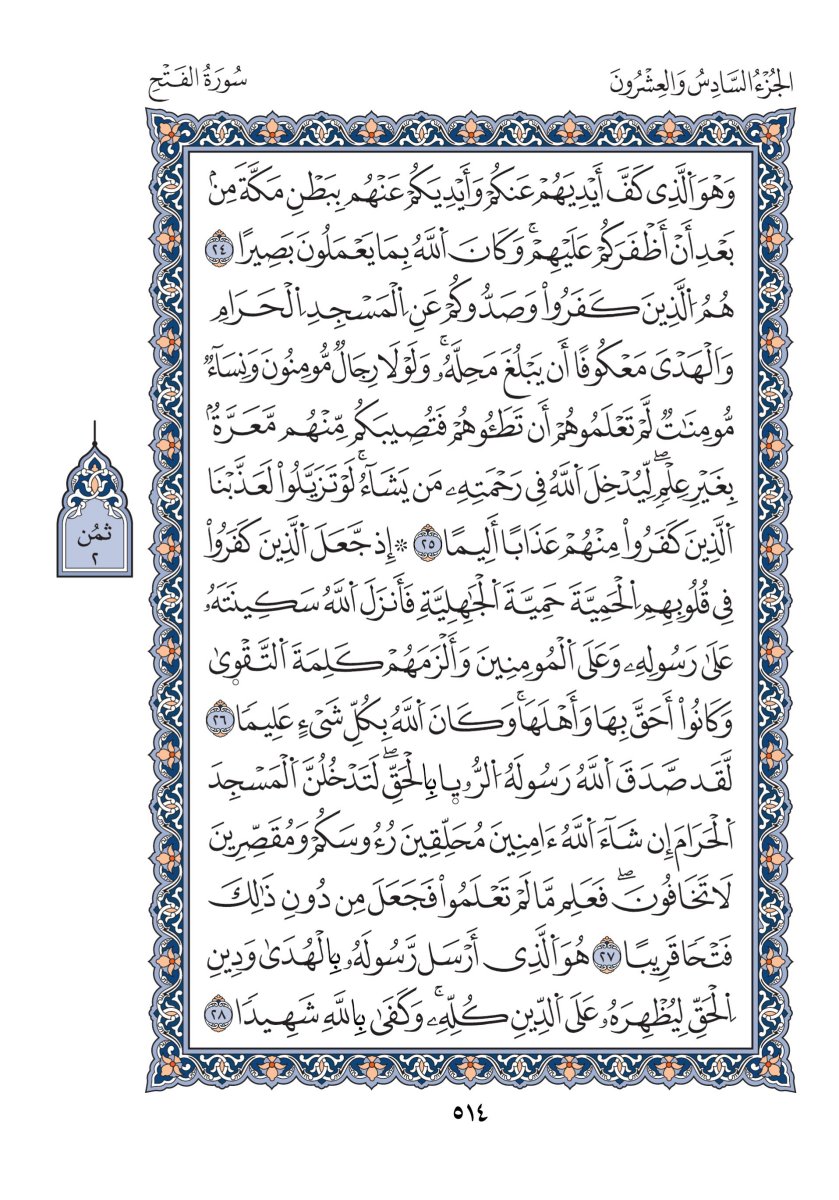 الجُزْءُ السَّادِسُ وَالعِشْرُونَ
سُورَةُ الفَتْحِ
وَهْوَ اَلَّذِے كَفَّ أَيْدِيَهُمْ عَنكُمْ وَأَيْدِيَكُمْ عَنْهُم بِبَطْنِ مَكَّةَ مِنۢ
بَعْدِ أَنْ أَظْفَرَكُمْ عَلَيْهِمْۚ وَكَانَ اَللَّهُ بِمَا يَعْمَلُونَ بَصِيرًا ٢٤
هُمُ اُلَّذِينَ كَفَرُواْ وَصَدُّوكُمْ عَنِ اِلْمَسْجِدِ اِلْحَرَامِ
وَالْهَدْىَ مَعْكُوفًا أَن يَبْلُغَ مَحِلَّهُۥۚ وَلَوْلَا رِجَالٌ مُّومِنُونَ وَنِسَآءٌ
مُّومِنَٰتٌ لَّمْ تَعْلَمُوهُمْ أَن تَطَـُٔوهُمْ فَتُصِيبَكُم مِّنْهُم مَّعَرَّةٌۢ
بِغَيْرِ عِلْمٍۖ لِّيُدْخِلَ اَللَّهُ فِى رَحْمَتِهِۦ مَن يَشَآءُۚ لَوْ تَزَيَّلُواْ لَعَذَّبْنَا
اَلَّذِينَ كَفَرُواْ مِنْهُمْ عَذَابًا أَلِيمًا ٢٥ ۞ إِذ جَّعَلَ اَلَّذِينَ كَفَرُواْ
فِى قُلُوبِهِمِ اِلْحَمِيَّةَ حَمِيَّةَ اَلْجَٰهِلِيَّةِ فَأَنزَلَ اَللَّهُ سَكِينَتَهُۥ
عَلَىٰ رَسُولِهِۦ وَعَلَى اَلْمُومِنِينَ وَأَلْزَمَهُمْ كَلِمَةَ اَلتَّقْوٜىٰ
وَكَانُوٓاْ أَحَقَّ بِهَا وَأَهْلَهَاۚ وَكَانَ اَللَّهُ بِكُلِّ شَىْءٍ عَلِيمًا ٢٦
لَّقَد صَّدَقَ اَللَّهُ رَسُولَهُ اُلرُّويٜا بِالْحَقِّۖ لَتَدْخُلُنَّ اَلْمَسْجِدَ
اَلْحَرَامَ إِن شَآءَ اَللَّهُ ءَامِنِينَ مُحَلِّقِينَ رُءُوسَكُمْ وَمُقَصِّرِينَ
لَا تَخَافُونَۖ فَعَلِم مَّا لَمْ تَعْلَمُواْ فَجَعَلَ مِن دُونِ ذَٰلِكَ
فَتْحًا قَرِيبًا ٢٧ هُوَ اَلَّذِى أَرْسَل رَّسُولَهُۥ بِالْهُدَىٰ وَدِينِ
اِلْحَقِّ لِيُظْهِرَهُۥ عَلَى اَلدِّينِ كُلِّهِۦۚ وَكَفَىٰ بِاللَّهِ شَهِيدًا ٢٨
ثمُن
٢
٥١٤